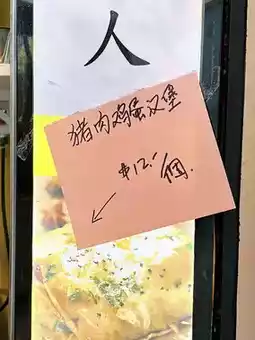 人
猪肉鸡蛋汉堡
$12.-/個.